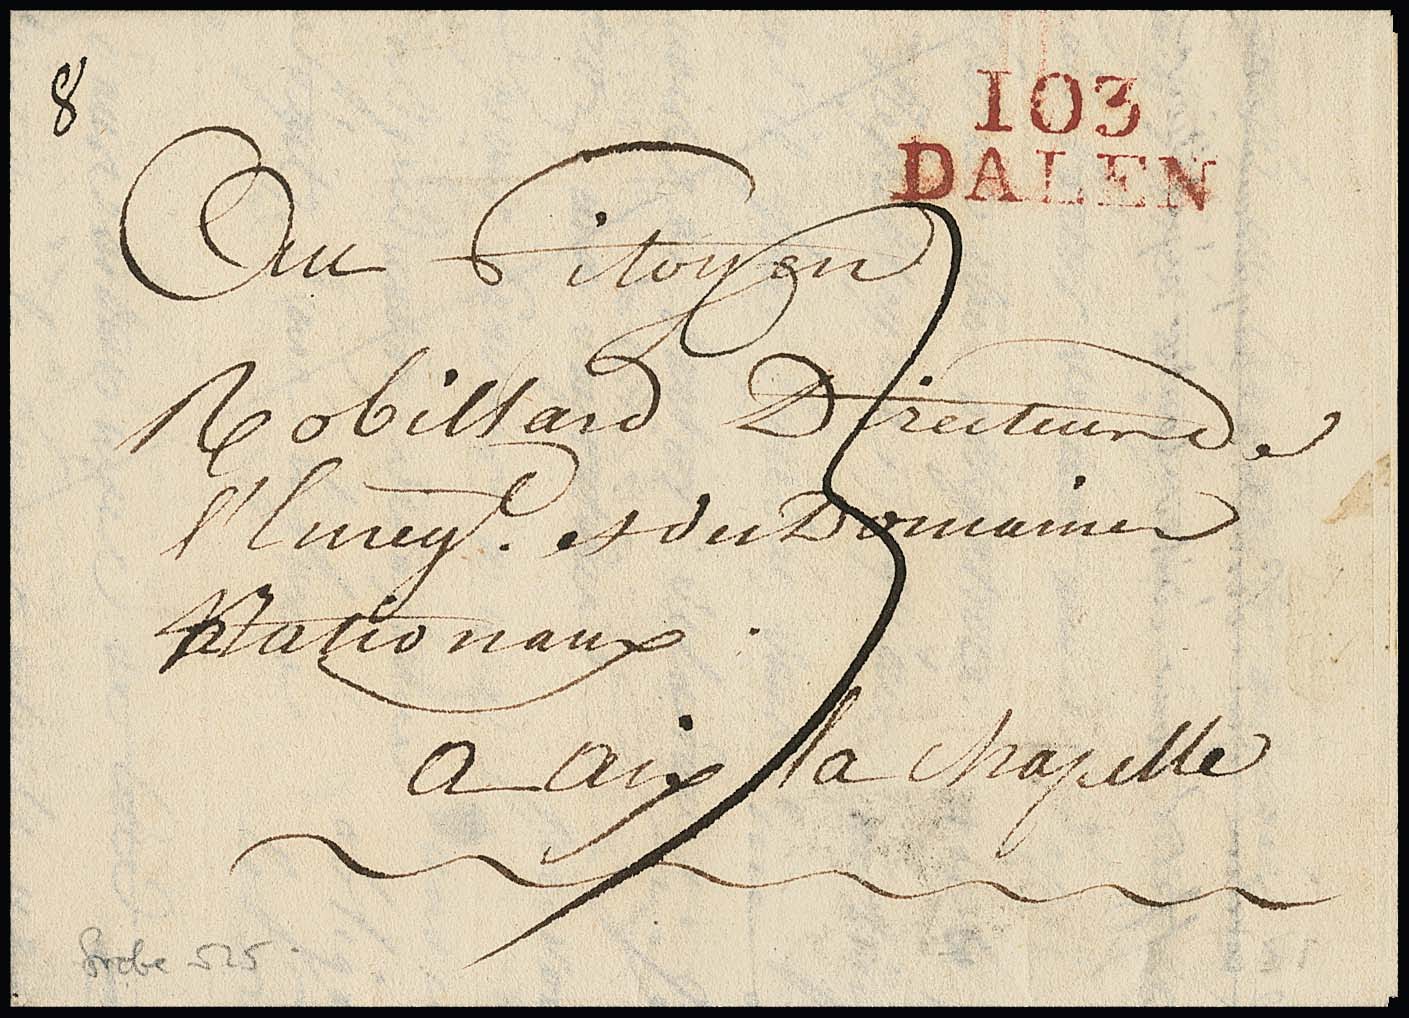 8
103
DALEN
Au Citoyen
Robillard Directeur de
l'Enreg.t et des Domaines
Nationaux
a aix la chapelle
3
Grobe 525